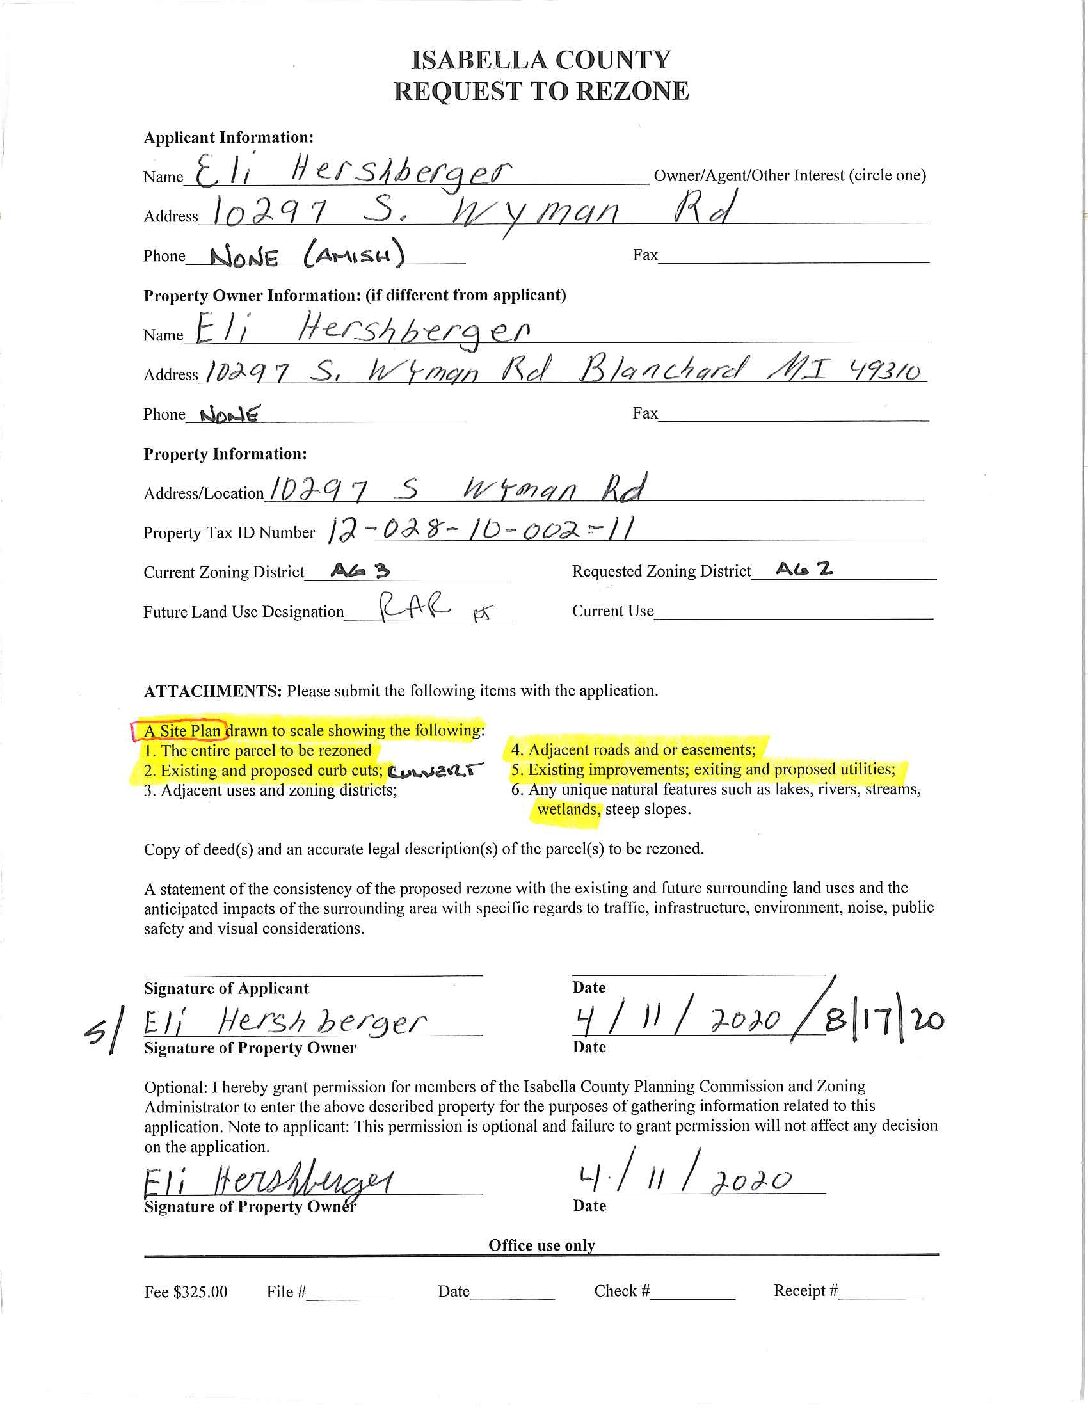 ISABELLA COUNTY
REQUEST TO REZONE
Applicant Information:
Name Eli Hershberger Owner/Agent/Other Interest (circle one)
Address 10297 S. Wyman Rd
Phone NONE (AMISH) Fax
Property Owner Information: (if different from applicant)
Name Eli Hershberger
Address 10297 S. Wyman Rd Blanchard MI 49310
Phone NONE Fax
Property Information:
Address/Location 10297 S Wyman Rd
Property Tax ID Number 12-028-10-002-11
Current Zoning District AG 3 Requested Zoning District AG 2
Future Land Use Designation RAR Current Use
ATTACHMENTS: Please submit the following items with the application.
A Site Plan drawn to scale showing the following:
1. The entire parcel to be rezoned
2. Existing and proposed curb cuts; CULVERT
3. Adjacent uses and zoning districts;
4. Adjacent roads and or easements;
5. Existing improvements; exiting and proposed utilities;
6. Any unique natural features such as lakes, rivers, streams,
wetlands, steep slopes.
Copy of deed(s) and an accurate legal description(s) of the parcel(s) to be rezoned.
A statement of the consistency of the proposed rezone with the existing and future surrounding land uses and the
anticipated impacts of the surrounding area with specific regards to traffic, infrastructure, environment, noise, public
safety and visual considerations.
Signature of Applicant Date
s/ Eli Hershberger 4/11/2020 / 8/17/20
Signature of Property Owner Date
Optional: I hereby grant permission for members of the Isabella County Planning Commission and Zoning
Administrator to enter the above described property for the purposes of gathering information related to this
application. Note to applicant: This permission is optional and failure to grant permission will not affect any decision
on the application.
Eli Hershberger 4/11/2020
Signature of Property Owner Date
Office use only
Fee $325.00 File # Date Check # Receipt #